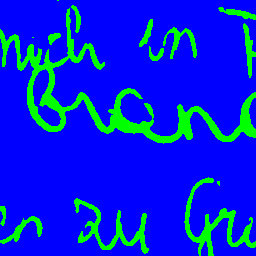 mich in
Bran
en zu Gra